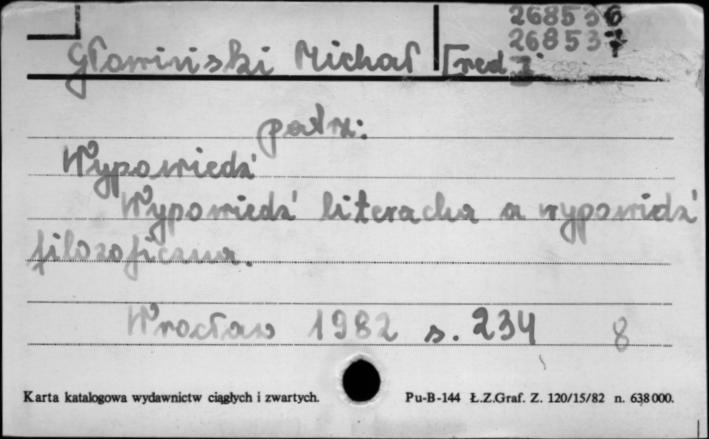 268536
268537
Głowiński Michał [red.]
patrz:
Wypowiedź
Wypowiedź literacka a wypowiedź
filozoficzna.
Wrocław 1982 s. 234 8
Karta katalogowa wydawnictw ciągłych i zwartych. Pu-B-144 Ł.Z.Graf. Z. 120/15/82 n. 638000.